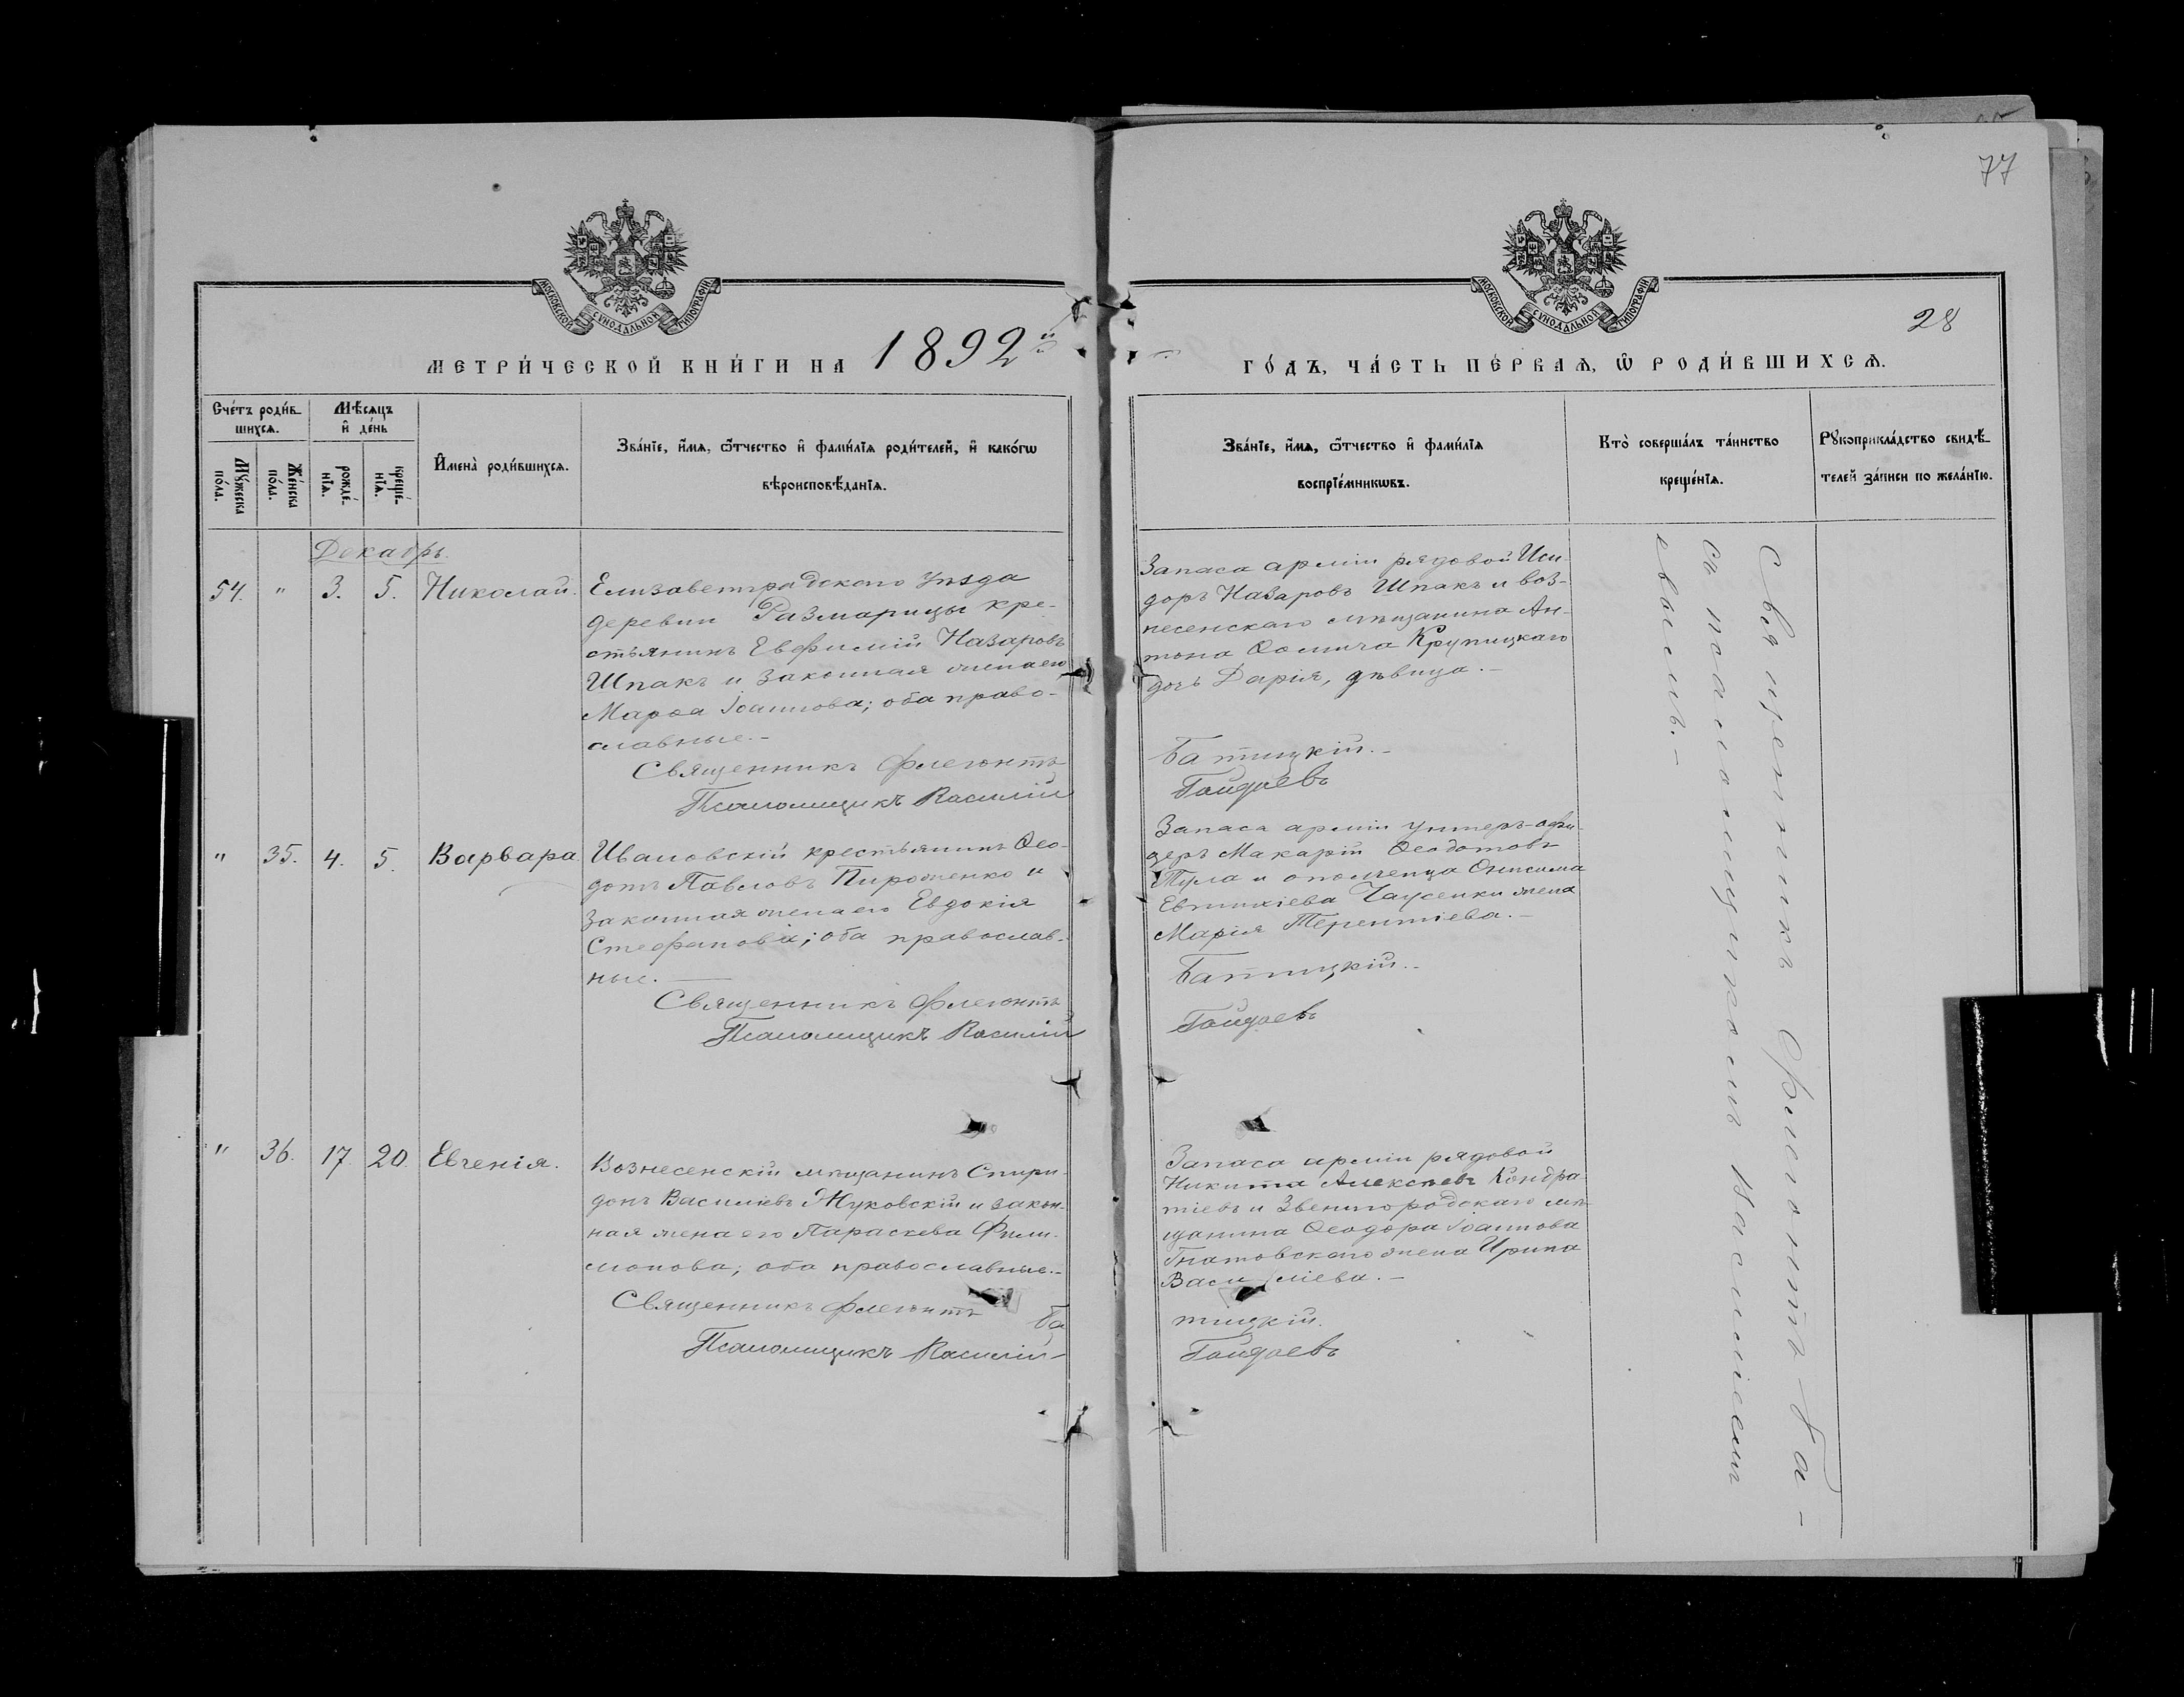 77
МОСКОВСКОЙ СѴНОДАЛЬНОЙ ТИПОГРАФІИ
МОСКОВСКОЙ СѴНОДАЛЬНОЙ ТИПОГРАФІИ
28
МЕТРИ́ЧЕСКОЙ КНИ́ГИ НА 1892й
ГО́ДЪ, ЧА́СТЬ ПЕ́РВАѦ, Ѿ РОДИ́ВШИХСѦ.
Счéтъ роди́в-
шихсѧ.
Мѣ́сѧцъ
и҆ де́нь
Мꙋ́жеска
по́ла.
Же́нска
по́ла.
рожде́-
нїѧ.
креще́-
нїѧ.
И҆мена̀ роди́вшихсѧ.
Зва́нїе, и҆́мѧ, ѻ҆́тчество и҆ фами́лїѧ роди́телей, и҆ како́гѡ
вѣроисповѣ́данїѧ.
Зва́нїе, и҆́мѧ, ѻ҆́тчество и҆ фами́лїѧ
воспрїе́мникѡвъ.
Кто̀ соверша́лъ та́инство
креще́нїѧ.
Рꙋкоприкла́дство свидѣ́-
телей за́писи по жела́нїю.
Декабрь.
54. " 3. 5. Николай.
Елизаветградскаго уѣзда
деревни Размарицы кре-
стьянинъ Евфимій Назаровъ
Шпакъ и законная жена его
Марѳа Іоаннова; оба право-
славные.-
Священникъ Флегонтъ
Псаломщикъ Василій
Запаса арміи рядовой Иси-
доръ Назаровъ Шпакъ и воз-
несенскаго мѣщанина Ан-
тона Ѳомича Крупицкаго
дочь Дарія, дѣвица.-
Батицкій.-
Гайдаевъ
" 35. 4. 5. Варвара
Ивановскій крестьянинъ Ѳео-
дотъ Павловъ Пироженко и
законная жена его Евдокія
Стефанова; оба православ-
ные.
Священникъ Флегонтъ
Псаломщикъ Василій
Запаса арміи унтеръ-офи-
церъ Макарій Ѳеодотовъ
Тула и ополченца Онисима
Евтихіева Чаусенки жена
Марія Терентіева.-
Батицкій.-
Гайдаевъ
" 36. 17. 20. Евгенія.
Вознесенскій мѣщанинъ Спири-
донъ Васильевъ Жуковскій и закон-
ная жена его Параскева Фили-
монова; оба православные.-
Священникъ Флегонтъ Ба
Псаломщикъ Василій
Запаса арміи рядовой
Никита Алексѣевъ Кондра-
тіевъ и Звенигородскаго мѣ-
щанина Ѳеодора Іоаннова
Гнатовскаго жена Ирина
Василіева.-
тицкій.
Гайдаевъ
Священникъ Флегонтъ Ба-
съ псаломщикомъ Василіемъ